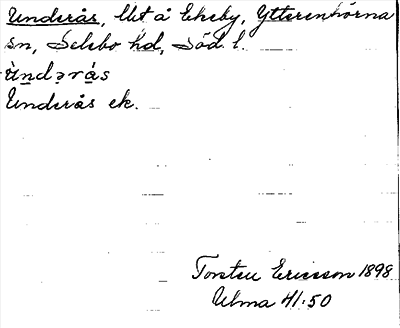 Underås, lht å Ekeby, Ytterenhörna
sn, Selebo hd, Söd. l.
ùndərás
Underås ek.
Torsten Ericsson 1898
Ulma 41:50